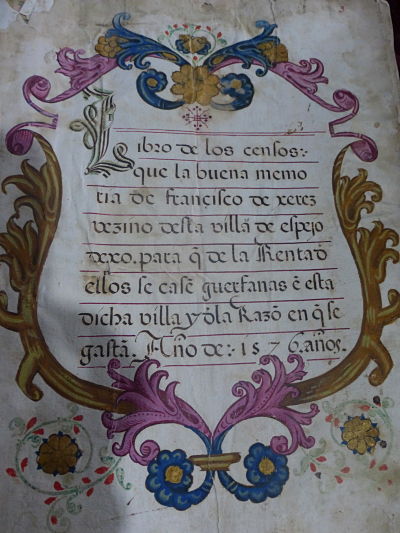 Libro de los censos:
que la buena memo
ria de françisco de xerez
vezino desta villa de espejo
dexo. para q̃ de la Renta d
ellos se casẽ guerfanas ẽ esta
dicha villa y da la Razõ en q̃ se
gastã. Año de: 1576. años.